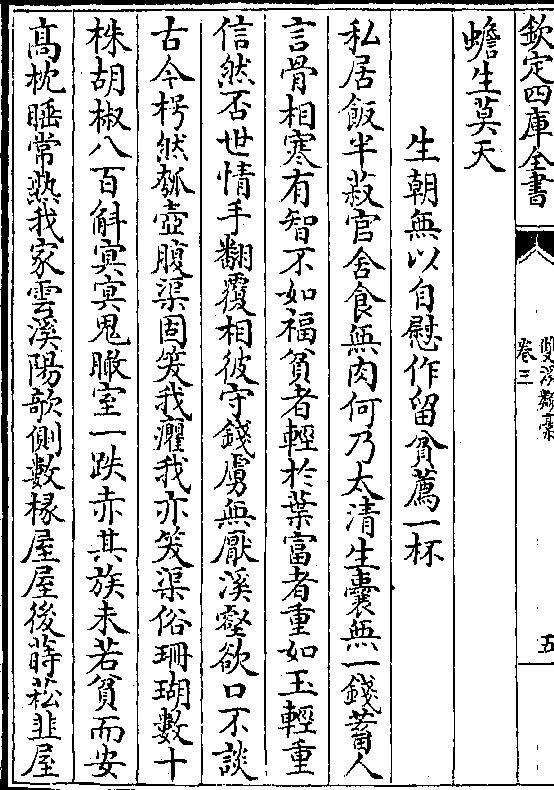 欽定四庫全書
雙溪類稾
卷三
五
蟾生莫天
生朝無以自慰作留貧薦一杯
私居飯半菽官舍食無肉何乃太清生囊無一錢蓄人
言骨相寒有智不如福貧者輕於葉富者重如玉輕重
信然否世情手翻覆相彼守錢虜無厭溪壑欲口不談
古今枵然瓠壺腹渠固笑我癯我亦笑渠俗珊瑚數十
株胡椒八百斛冥冥鬼瞰室一跌赤其族未若貧而安
高枕睡常熟我家雲溪陽欹側數椽屋屋後蒔菘韭屋